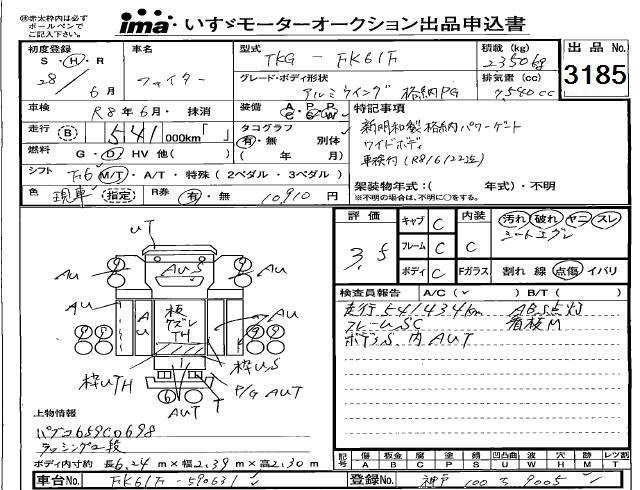 ※赤太枠内は必ず
ボールペンで
ご記入下さい。
ima いすゞモーターオークション出品申込書
初度登録
S・H・R
28/6月
車名
ファイター
型式
TKG-FK61F
グレード・ボディ形状
アルミウイング 格納PG
積載(kg)
2350kg
排気量(cc)
7,540cc
出品No.
3185
車検
R8年6月・抹消
装備 AC PS PW
走行 B 541,000km「 」
タコグラフ
有・無 別体
( 年 月)
燃料 G・D HV 他( )
シフト F6 M/T・A/T・特殊(2ペダル・3ペダル)
色 現車(指定)
R券 有・無 10,910円
特記事項
新明和製格納パワーゲート
ワイドボディ
車検付(R8/6/22迄)
架装物年式:( 年式)・不明
※不明の場合は、不明に○をする。
評価
3.5
キャブ C
フレーム C
ボディ C
内装 C
Fガラス
汚れ 破れ ヤニ スレ
シートエグレ
割れ 線 点傷 イバリ
検査員報告 A/C(✓) B/T( )
走行541,434km ABS点灯
フレームSC 看板M
ボデS、内AUT
UT
AU
AUS
AU
AU
AU
板
TH
AU
枠UTH
枠US
P/G AUT
AUT
T
上物情報
パブコ659C0698
ラッシング二段
ボディ内寸約 長6.24m×幅2.39m×高2.30m
記号
傷 板金 腐 塗 錆 凹凸曲 波 穴 跡 レツ割
A B C P S U W H M T
車台No. FK61F-590631
登録No. 神戸 100 う 9005